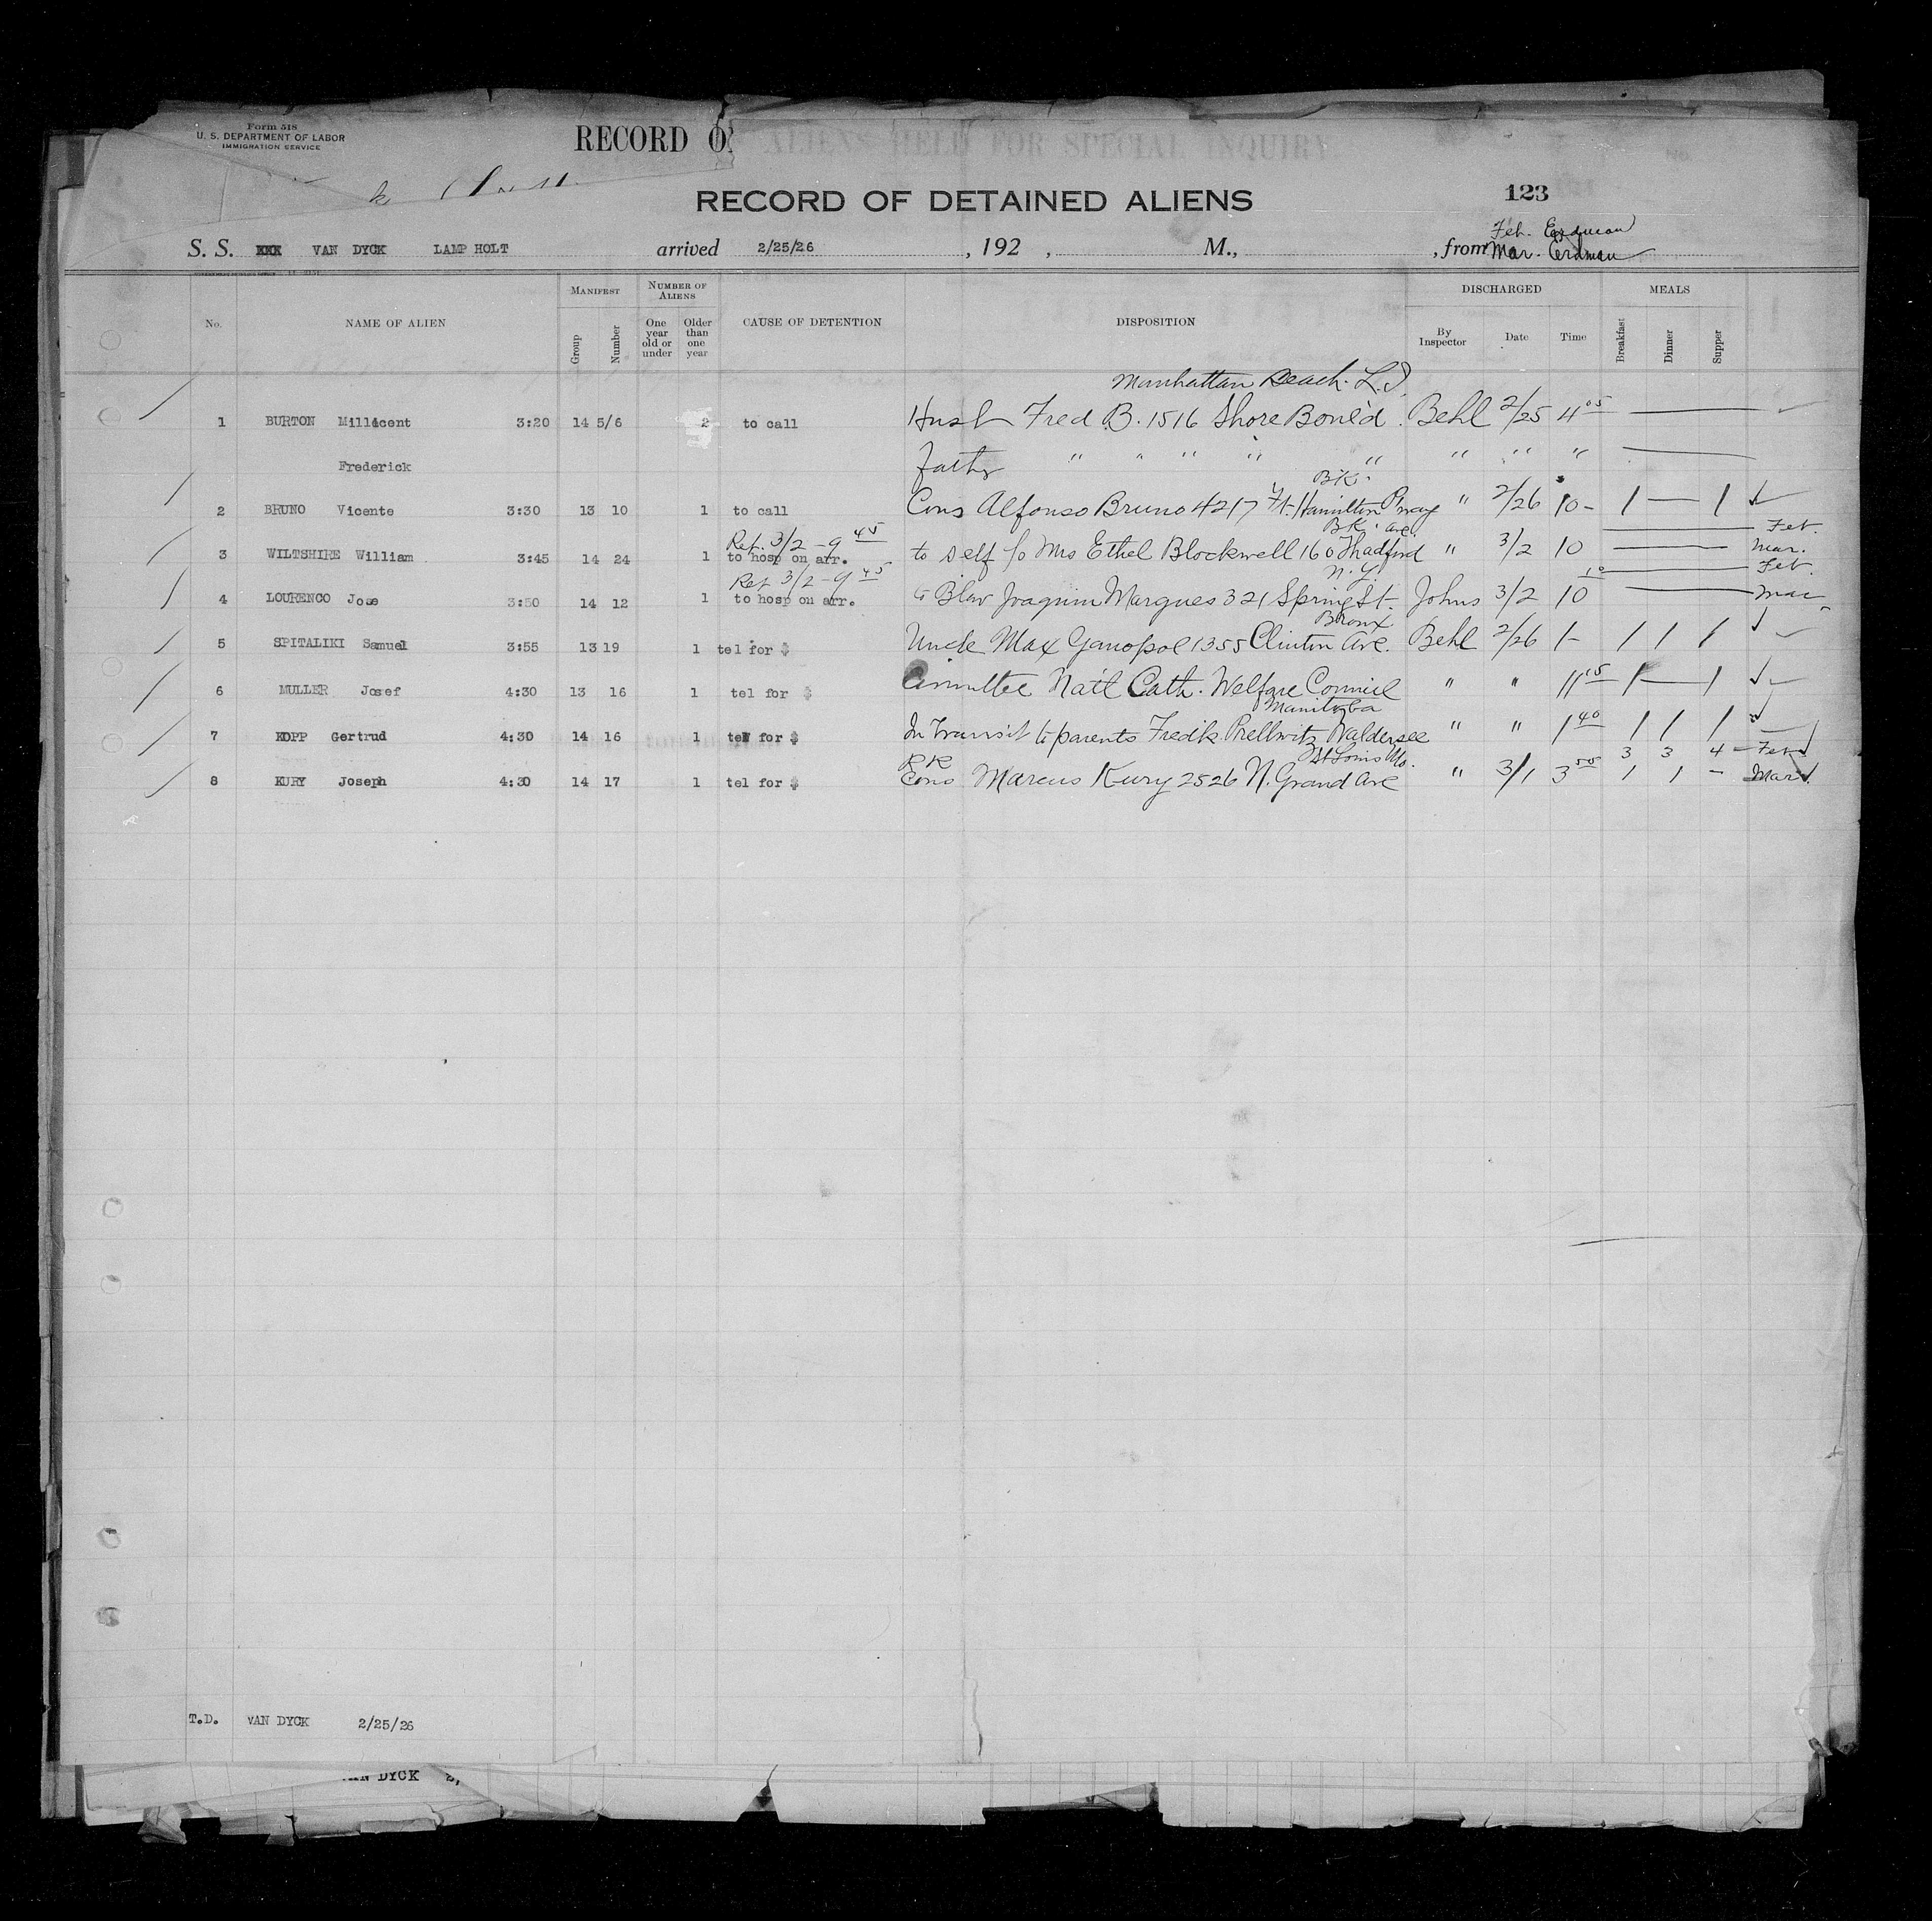 Form 518
U. S. DEPARTMENT OF LABOR
IMMIGRATION SERVICE
RECORD O
ALIENS HELD FOR SPECIAL INQUIRY
RECORD OF DETAINED ALIENS
123
Feb. Erdman
S. S. XXX VAN DYCK LAMP HOLT arrived 2/25/26 , 192 , M., , from Mar. Erdman
No. NAME OF ALIEN MANIFEST NUMBER OF ALIENS CAUSE OF DETENTION DISPOSITION DISCHARGED MEALS
Group Number One year old or under Older than one year By Inspector Date Time Breakfast Dinner Supper
Manhattan Beach. L.I.
1 BURTON Millicent 3:20 14 5/6 2 to call Husb Fred B. 1516 Shore Boule'd. Behl 2/25 4 05
Frederick Father " " " " " " " "
Bk.
2 BRUNO Vicente 3:30 13 10 1 to call Cons Alfonso Bruno 4217 Ft. Hamilton Pway " 2/26 10 - 1 — 1
Ref. 3/2 - 9 45 Bk. ave. Feb.
3 WILTSHIRE William 3:45 14 24 1 to hosp on arr. to self c/o Mrs Ethel Blockwell 160 " 3/2 10 Mar.
Ref 3/2 - 9 45 N.Y. Feb.
4 LOURENCO Jose 3:50 14 12 1 to hosp on arr. Joaquim Marques 321 Spring St. Johns 3/2 10 10 Mar
Bronx
5 SPITALIKI Samuel 3:55 13 19 1 tel for $ Uncle Max Ganopol 1355 Clinton Ave. Behl 2/26 1- 1 1 1
6 MULLER Josef 4:30 13 16 1 tel for $ Committee Nat'l Cath. Welfare Council " " 11 15 1 — 1
Manitoba
7 KOPP Gertrud 4:30 14 16 1 tel for $ In transit to parents Fredk. Prellwitz Waldersee " " 1 40 1 1 1
RR St Louis Mo. 3 3 4 - Feb
8 KURY Joseph 4:30 14 17 1 tel for $ Cons Marcus Kury 2526 N. Grand Ave " 3/1 3 55 1 1 - Mar.
T.D. VAN DYCK 2/25/26
AN DYCK